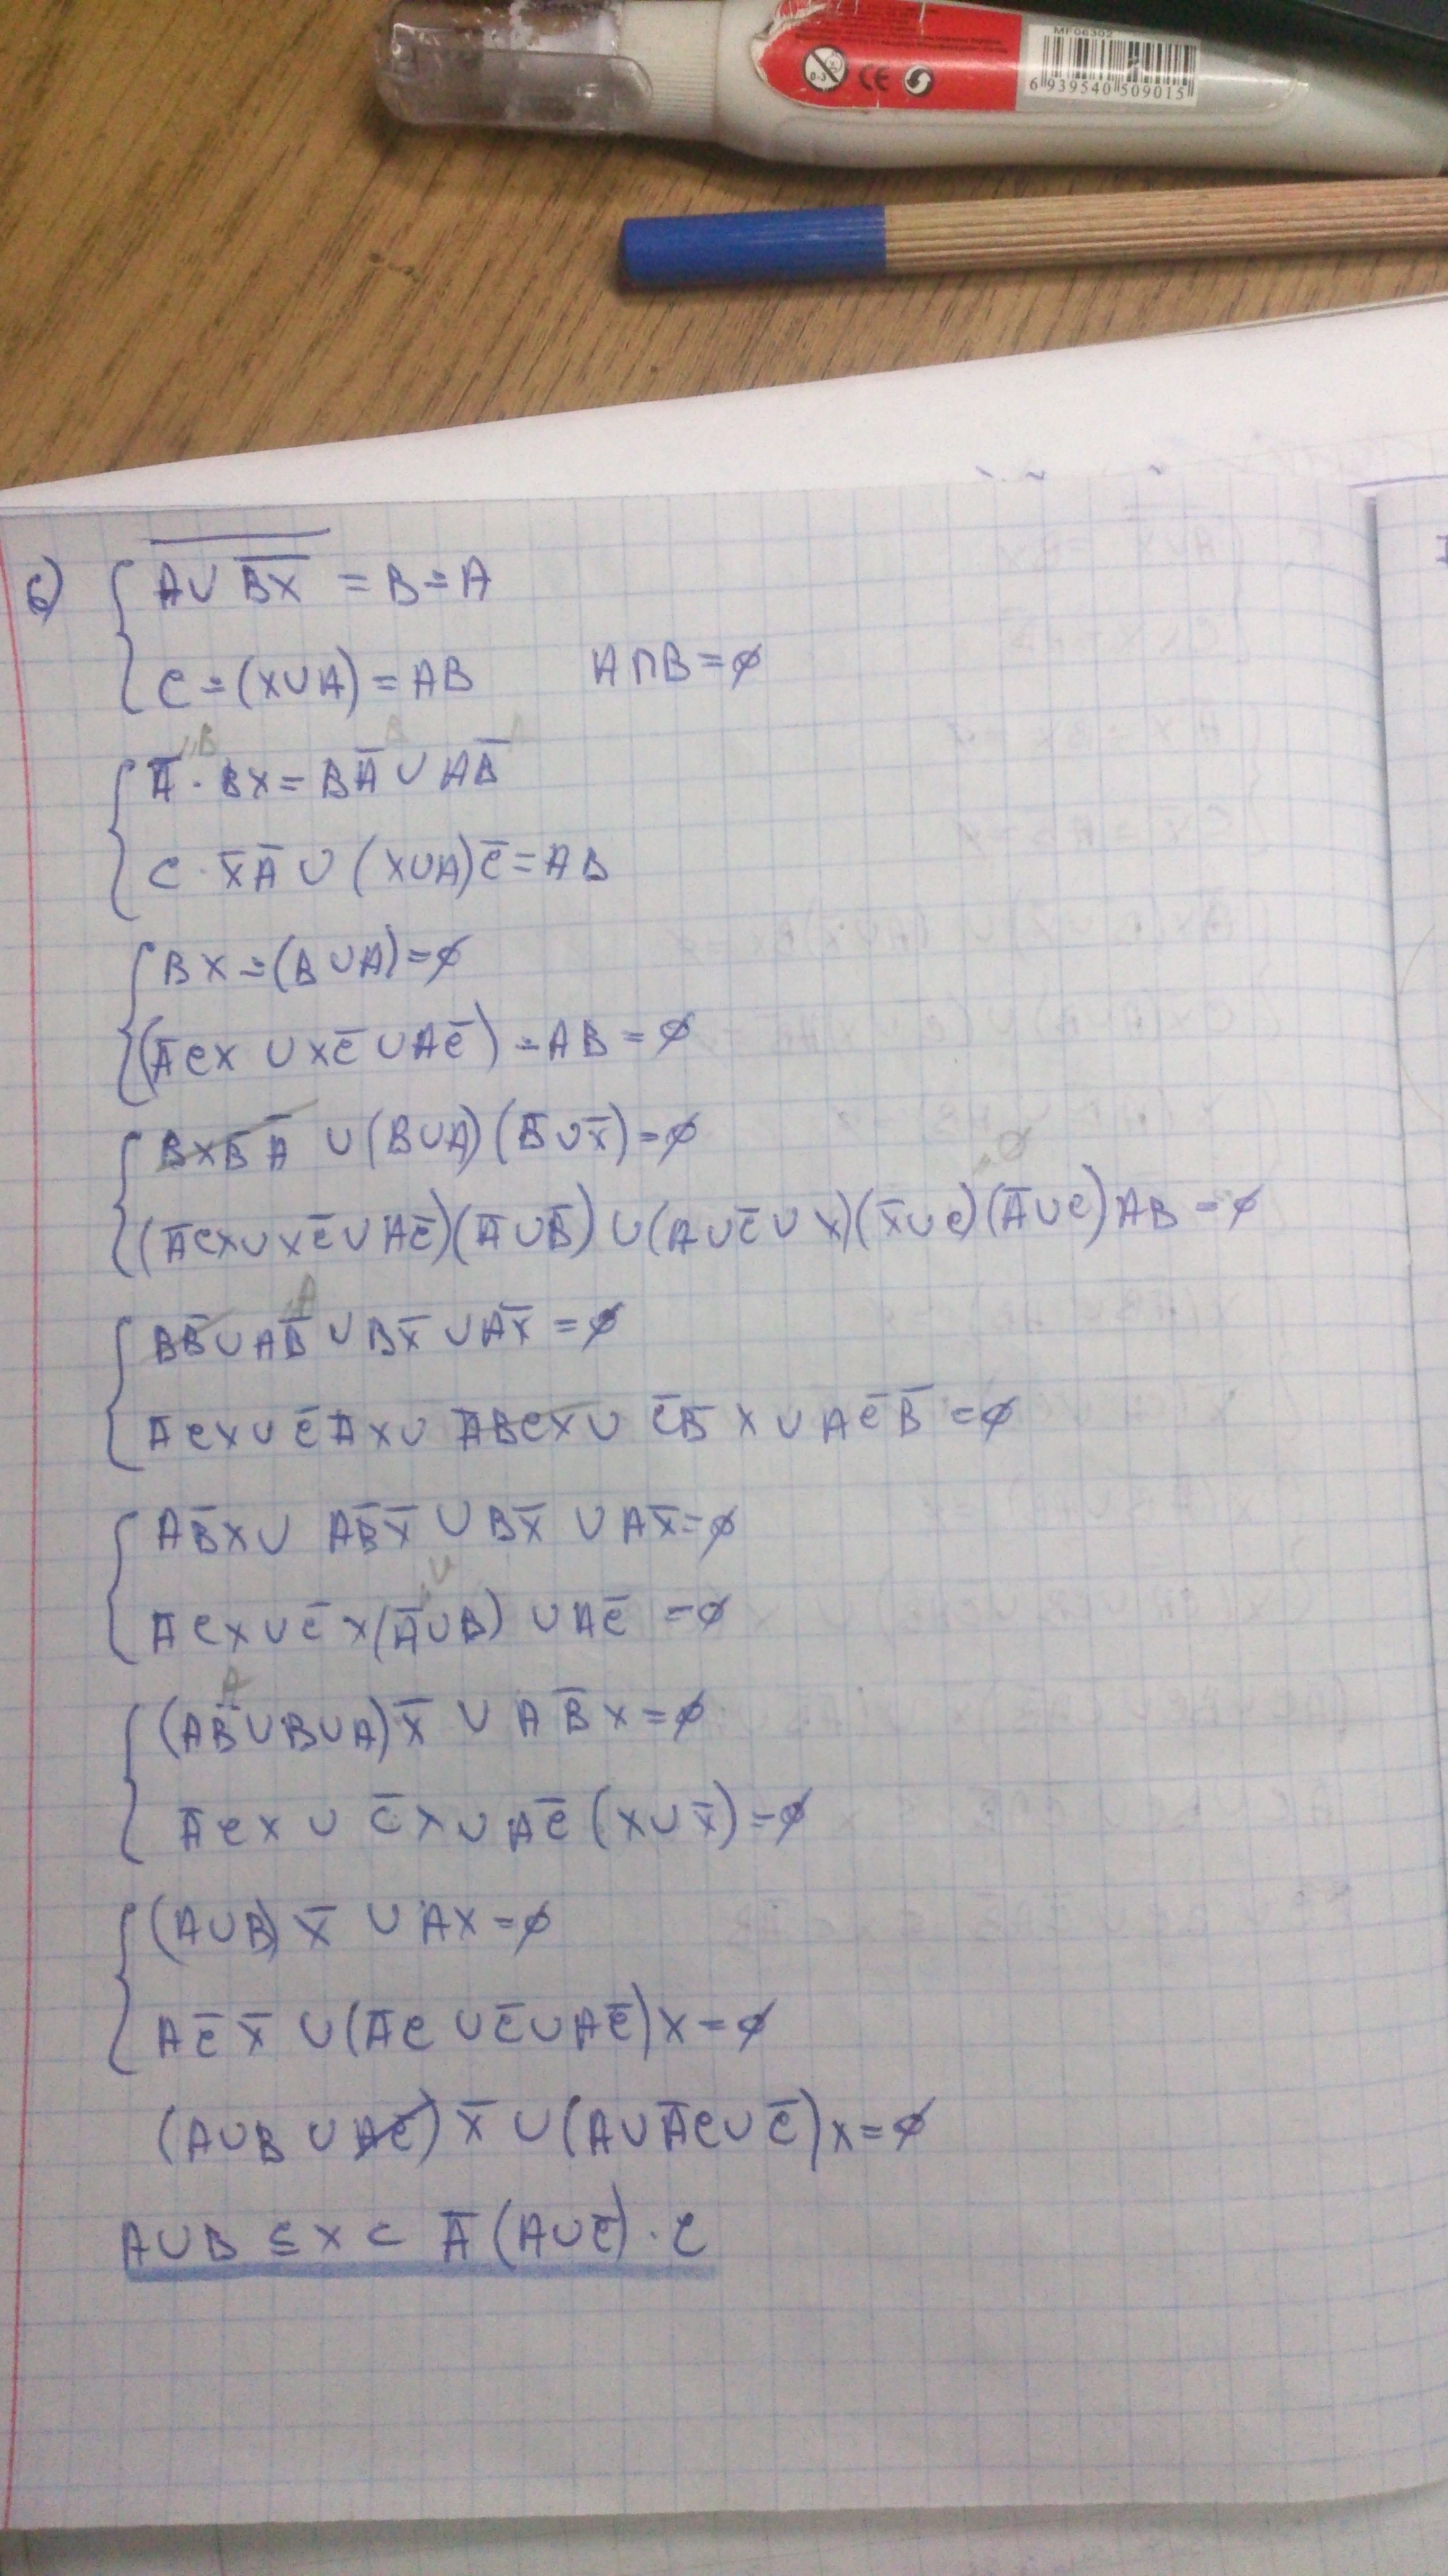 MF06302
0-3 CE
6 939540 509015
б) { \overline{A∪\overline{BX}} = B∸A
C∸(X∪A) = AB A∩B=∅
{ \overline{A}·BX = B\overline{A} ∪ A\overline{B}
C·\overline{X}\overline{A} ∪ (X∪A)\overline{C} = AB
{ BX∸(B∪A)=∅
(\overline{A}CX ∪ X\overline{C} ∪ A\overline{C})∸AB=∅
{ BX\overline{B}\overline{A} ∪ (B∪A)(\overline{B}∪\overline{X})=∅
(\overline{A}CX∪X\overline{C}∪A\overline{C})(\overline{A}∪\overline{B}) ∪ (A∪\overline{C}∪X)(\overline{X}∪C)(\overline{A}∪C)AB=∅
{ B\overline{B}∪A\overline{B} ∪ B\overline{X} ∪ A\overline{X} = ∅
\overline{A}CX∪\overline{C}\overline{A}X∪ \overline{A}\overline{B}CX∪ \overline{C}\overline{B}X∪A\overline{C}\overline{B}=∅
{ A\overline{B}X∪ A\overline{B}\overline{X} ∪ B\overline{X} ∪ A\overline{X}=∅
\overline{A}CX∪\overline{C}X(\overline{A}∪B) ∪A\overline{C} =∅
{ (A\overline{B}∪B∪A)\overline{X} ∪ A\overline{B}X=∅
\overline{A}CX ∪ \overline{C}X∪A\overline{C}(X∪\overline{X})=∅
{ (A∪B)\overline{X} ∪ AX=∅
A\overline{C}\overline{X} ∪(\overline{A}C∪\overline{C}∪A\overline{C})X=∅
(A∪B∪A\overline{C})\overline{X} ∪(A∪\overline{A}C∪\overline{C})X=∅
A∪B ⊆ X ⊂ \overline{A}(A∪\overline{C})·C